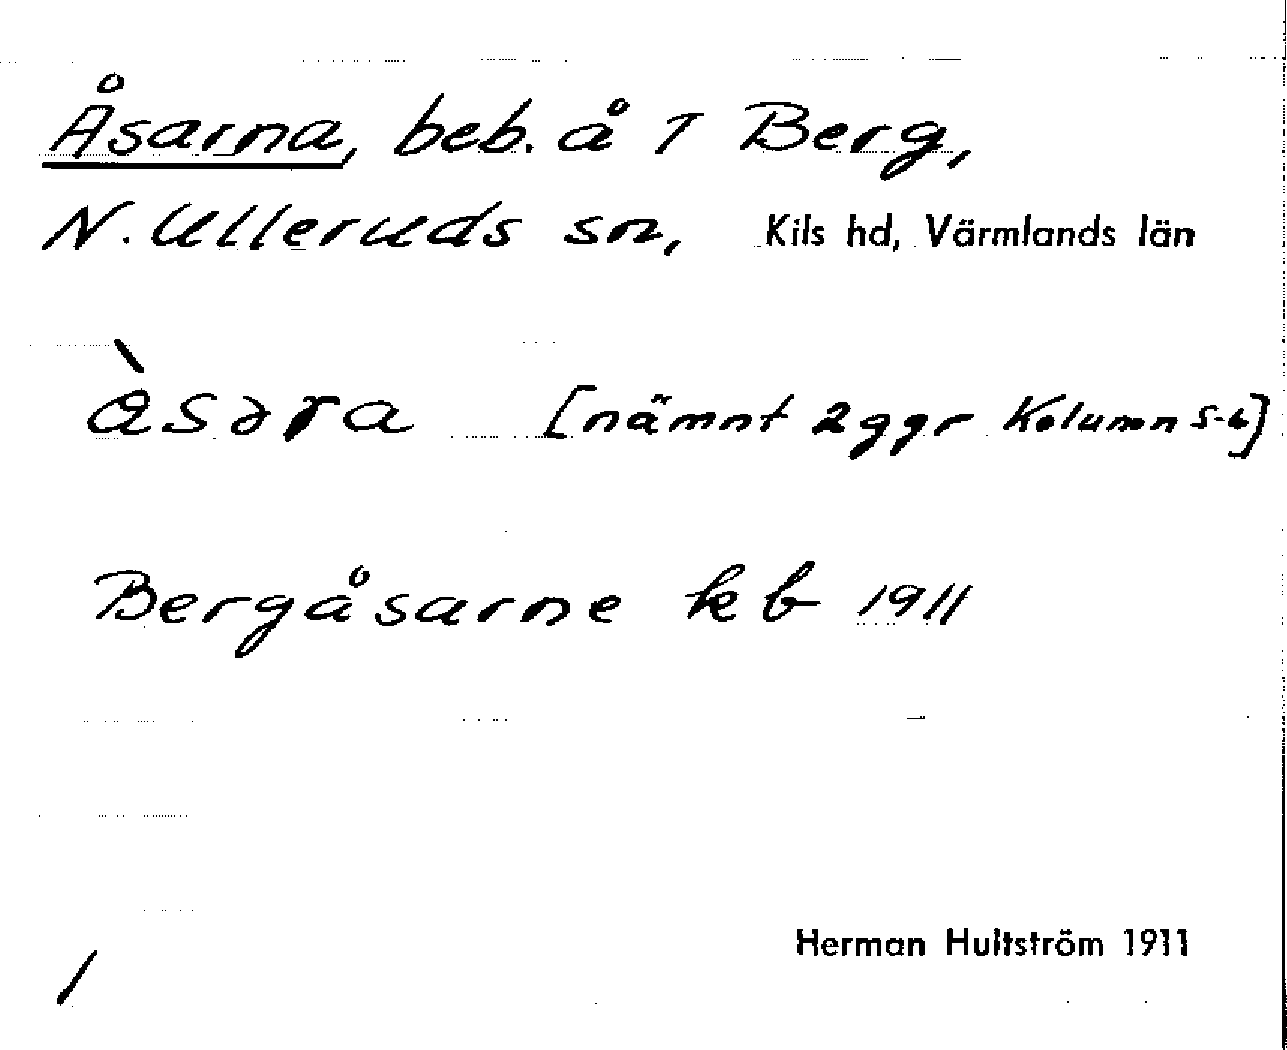 Åsarna, beb. å 1 Berg,
N. Ulleruds sn, Kils hd, Värmlands län
àsəra [nämnt 2 ggr Kolumn 5-6]
Bergåsarne kb 1911
Herman Hultström 1911
/